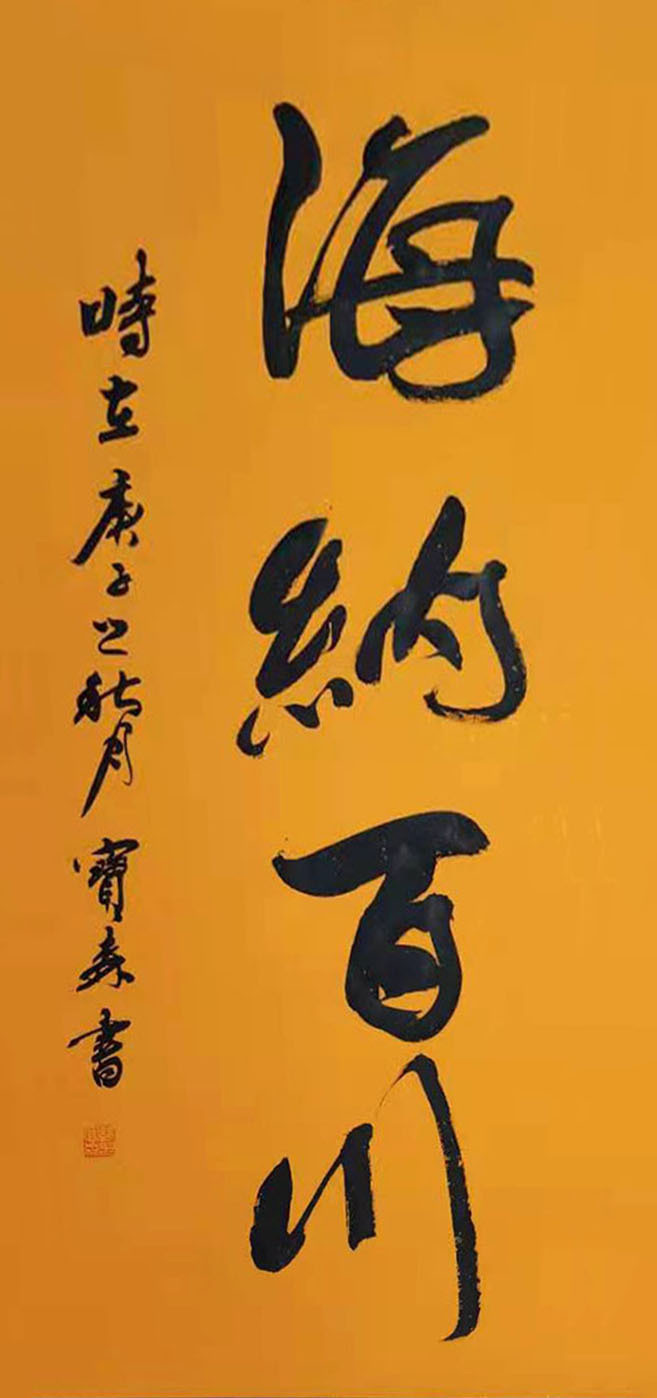 海納百川
時在庚子之秋月寶森書